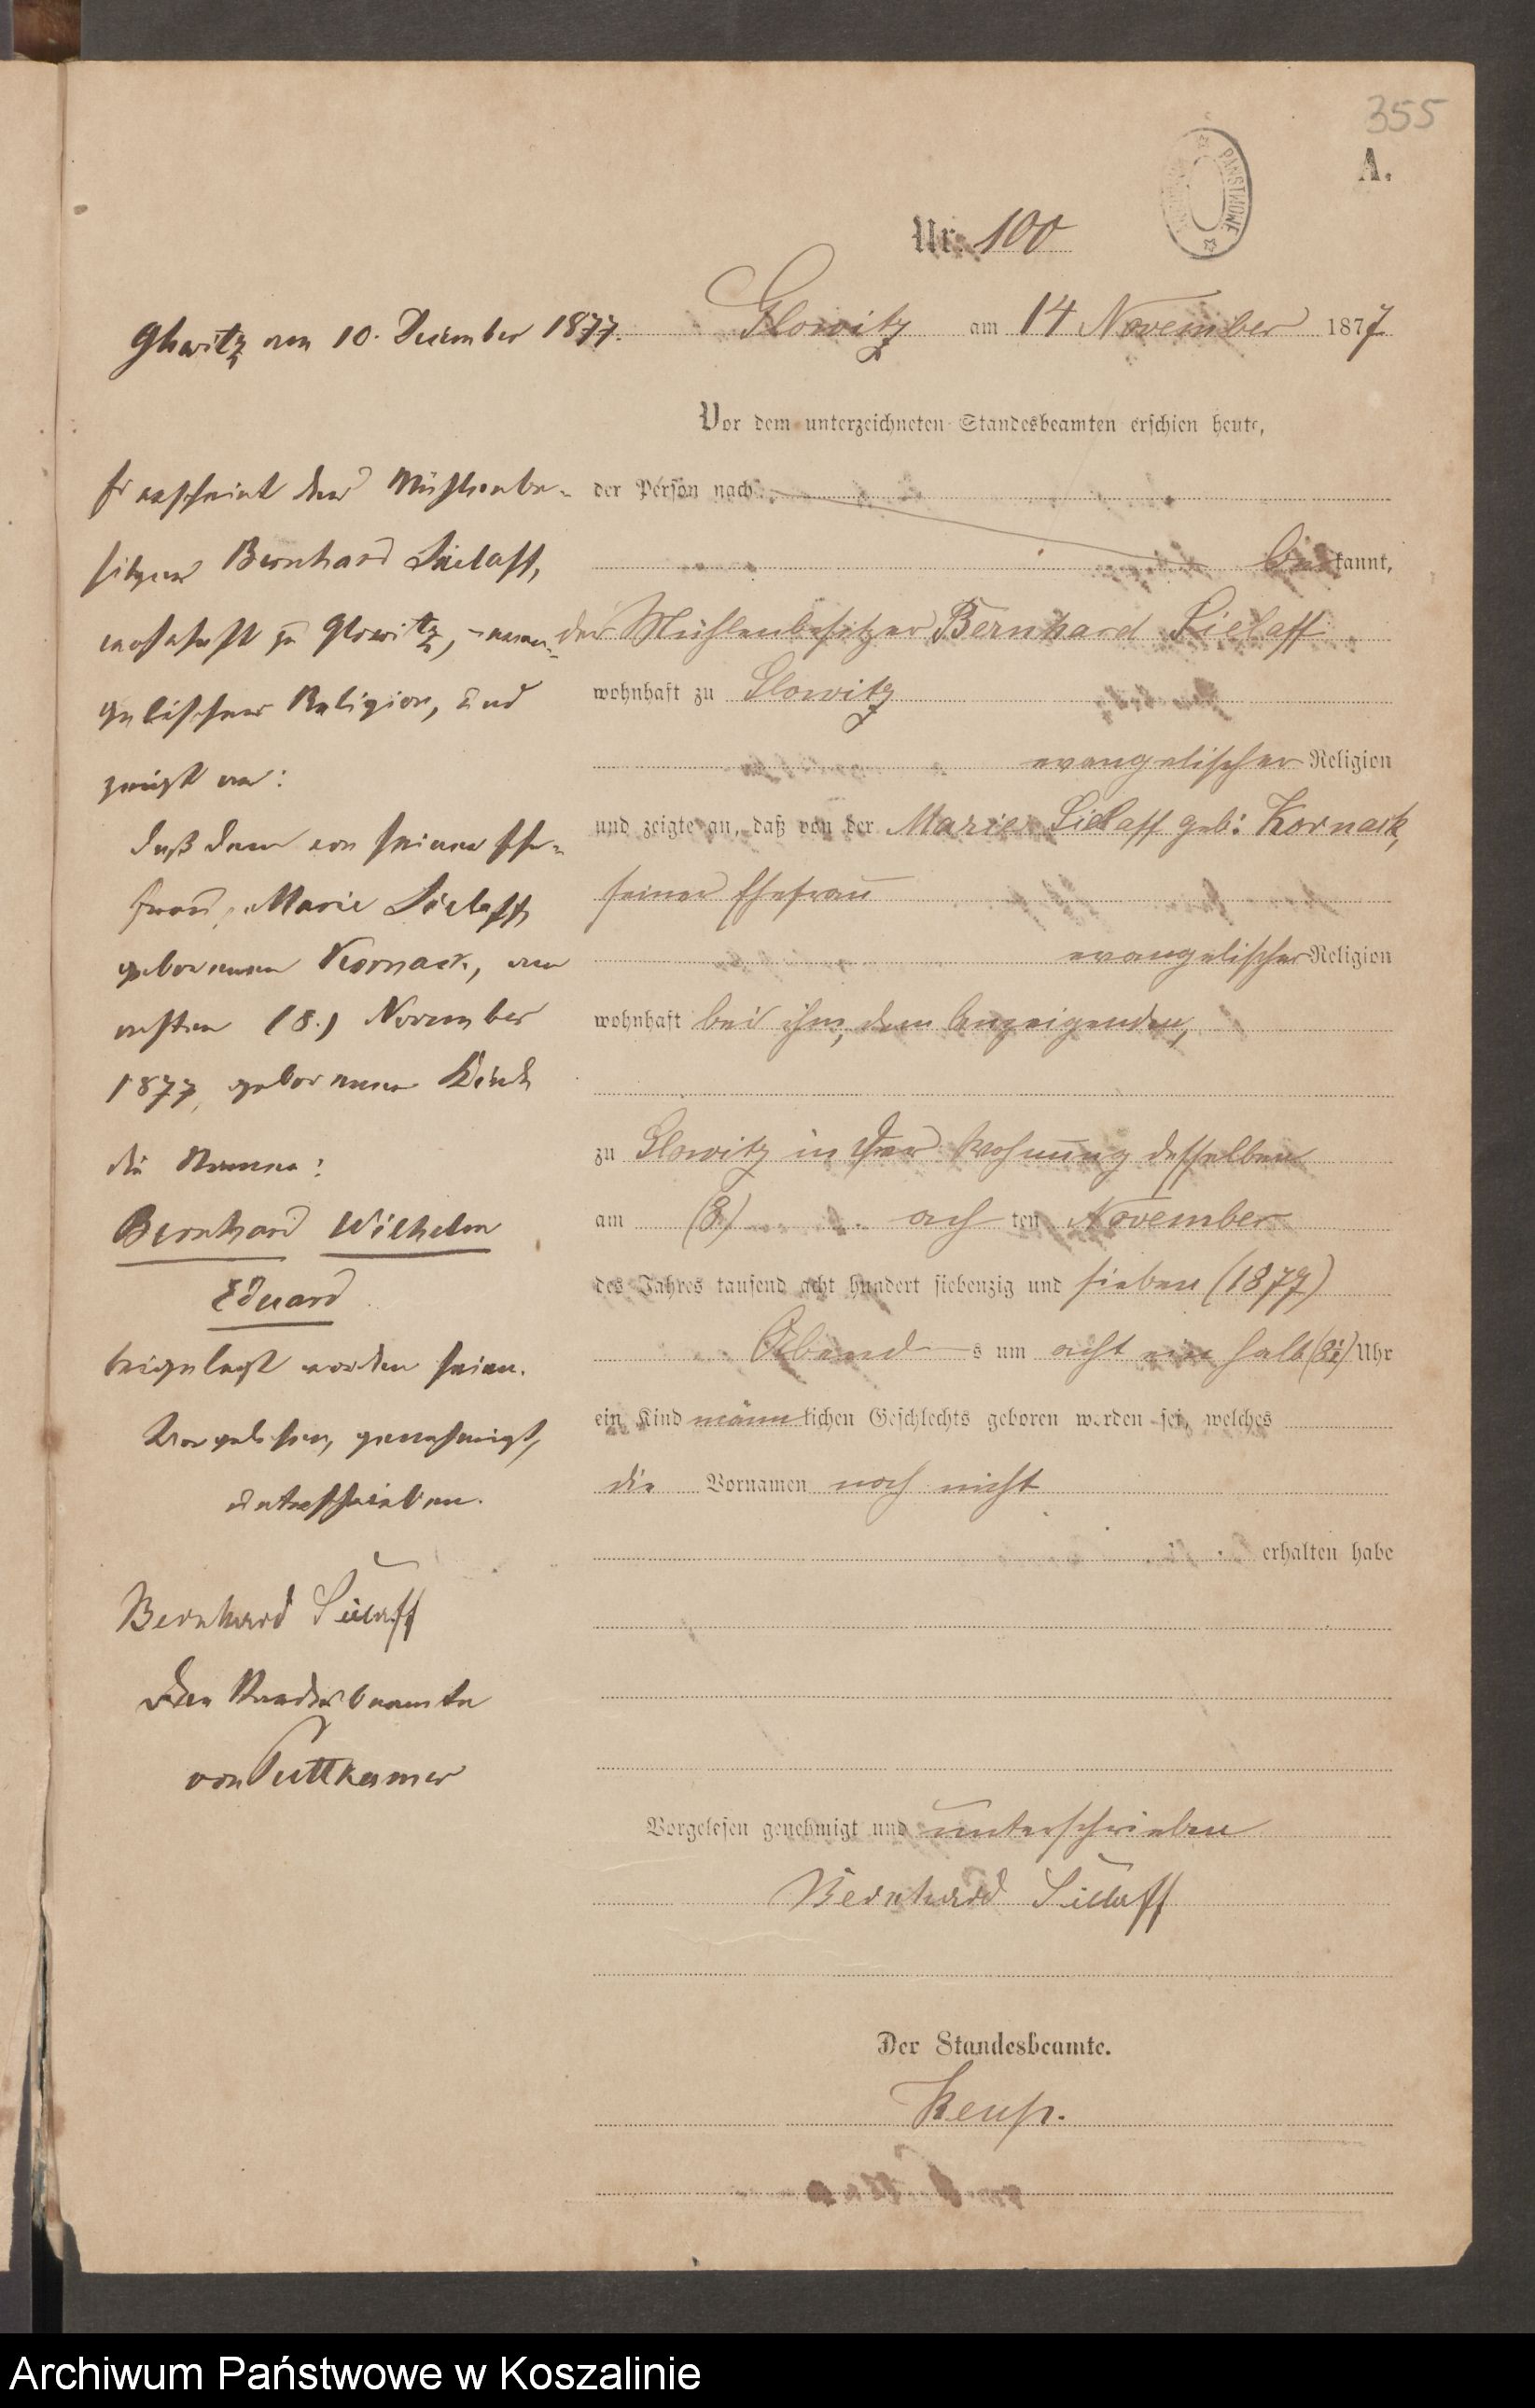 355
A.
PAŃSTWOWE
Nr. 100
Glowitz am 14 November 1877
Vor dem unterzeichneten Standesbeamten erschien heute,
der Person nach
be kannt,
der Mühlenbesitzer Bernhard Sielaff
wohnhaft zu Glowitz
evangelischer Religion
und zeigte an, daß von der Marie Sielaff geb: Kornack,
seiner Ehefrau
evangelischer Religion
wohnhaft bei ihm, dem Anzeigenden,
zu Glowitz in der Wohnung desselben
am (8) ach ten November
des Jahres tausend acht hundert siebenzig und sieben (1877)
Abend s um acht ein halb (8½) Uhr
ein Kind männ lichen Geschlechts geboren worden sei, welches
die Vornamen noch nicht
erhalten habe
Vorgelesen genehmigt und unterschrieben
Bernhard Sielaff
Der Standesbeamte.
Glowitz am 10. December 1877.
Es erscheint der Mühlenbe-
sitzer Bernhard Sielaff,
wohnhaft zu Glowitz, evan-
gelischer Religion, und
zeigt an:
daß dem von seiner Ehe-
frau, Marie Sielaff,
geborenen Kornack, am
achten (8.) November
1877, geborenen Kinde
die Namen:
Bernhard Wilhelm
Eduard
beigelegt worden seien.
Vorgelesen, genehmigt,
unterschrieben.
Bernhard Sielaff
Der Standesbeamte
von Puttkamer
Archiwum Państwowe w Koszalinie